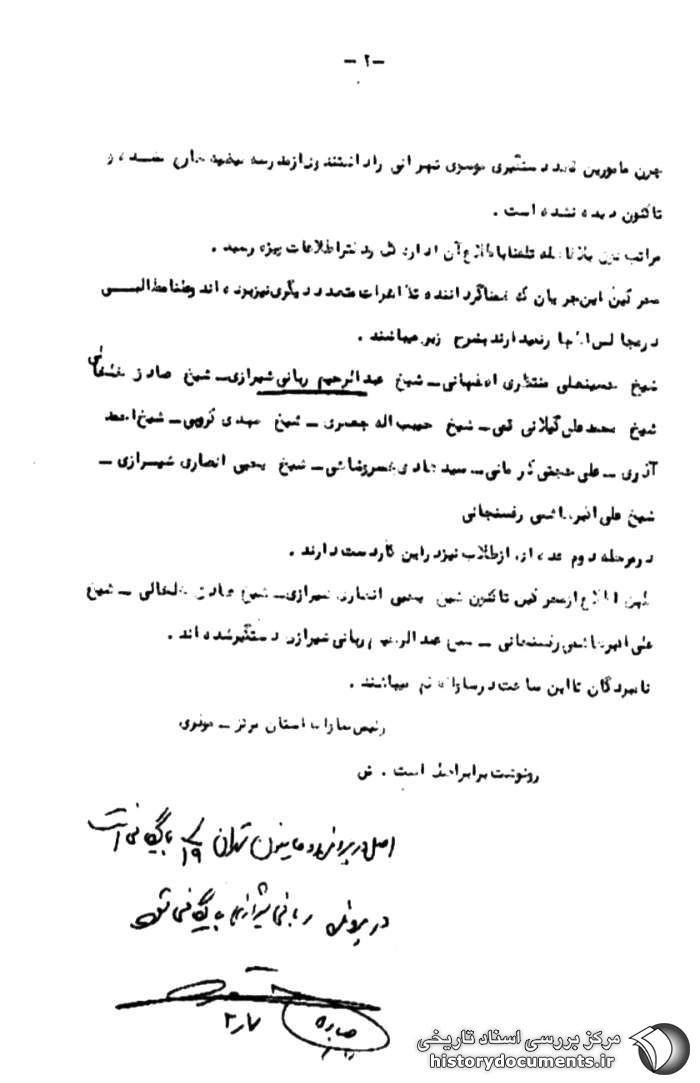 -۲-
چون مامورین قصد دستگیری موسوی تهرانی را داشتند وی از مدرسه فیضیه خارج شده، و
تاکنون دیده نشده است.
مراتب بلافاصله تلفنا باطلاع آن اداره کل و دفتر اطلاعات ویژه رسید.
محرکین این جریان که گرداننده تظاهرات متعدد دیگری نیز بوده اند وضمنا مطالبـــی
در مجالس دارند بشرح زیر میباشند.
شیخ حسینعلی منتظری اصفهانی - شیخ عبدالرحیم ربانی شیرازی - شیخ صادق خلخالی
شیخ محمدعلی گیلانی قمی - شیخ حبیب اله - شیخ مهدی کروبی - شیخ احمد
آذری - علی حجتی کرمانی - سید هادی خسروشاهی - شیخ یحیی انصاری شیـرازی -
شیخ علی اکبر هاشمی رفسنجانی
در مرحله دوم عده ای از طلاب نیز در این کار دست دارند.
از محرکین تاکنون شیخ یحیی انصاری شیرازی - شیخ صادق خلخالی - شیخ
علی اکبر هاشمی رفسنجانی - شیخ عبدالرحیم ربانی شیرازی دستگیر شده اند.
نامبردگان تا این ساعت در ساواک قم میباشند.
رئیس ساواک استان مرکز - مولوی
رونوشت برابر اصل است. ش
اصل در پرونده تهران ۱۹ بایگانی است
در پرونده ربانی شیرازی بایگانی شود
۲
مرکز بررسی اسناد تاریخی
historydocuments.ir